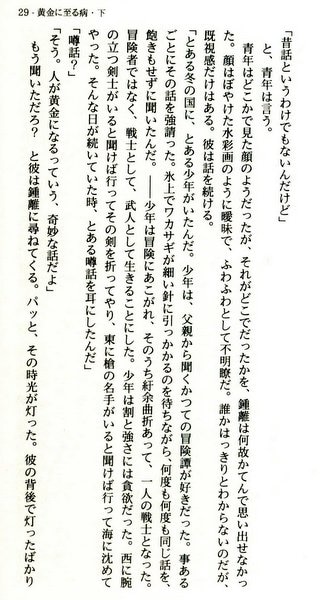 29 - 黄金に至る病・下
「昔話というわけでもないんだけど」
と、青年は言う。
青年はどこかで見た顔のようだったが、それがどこでだったかを、鍾離は何故かてんで思い出せなかっ
た。顔はぼやけた水彩画のように曖昧で、ふわふわとして不明瞭だ。誰かはっきりとわからないのだが、
既視感だけはある。彼は話を続ける。
「とある冬の国に、とある少年がいたんだ。少年は、父親から聞くかつての冒険譚が好きだった。事ある
ごとにその話を強請った。氷上でワカサギが細い針に引っかかるのを待ちながら、何度も何度も同じ話を、
飽きもせずに聞いたんだ。――少年は冒険にあこがれ、そのうち紆余曲折あって、一人の戦士となった。
冒険者ではなく、戦士として、武人として生きることにした。少年は割と強さには貪欲だった。西に腕
の立つ剣士がいると聞けば行ってその剣を折ってやり、東に槍の名手がいると聞けば行って海に沈めて
やった。そんな日が続いていた時、とある噂話を耳にしたんだ」
「噂話？」
「そう。人が黄金になるっていう、奇妙な話だよ」
もう聞いただろ？　と彼は鍾離に尋ねてくる。パッと、その時光が灯った。彼の背後で灯ったばかり